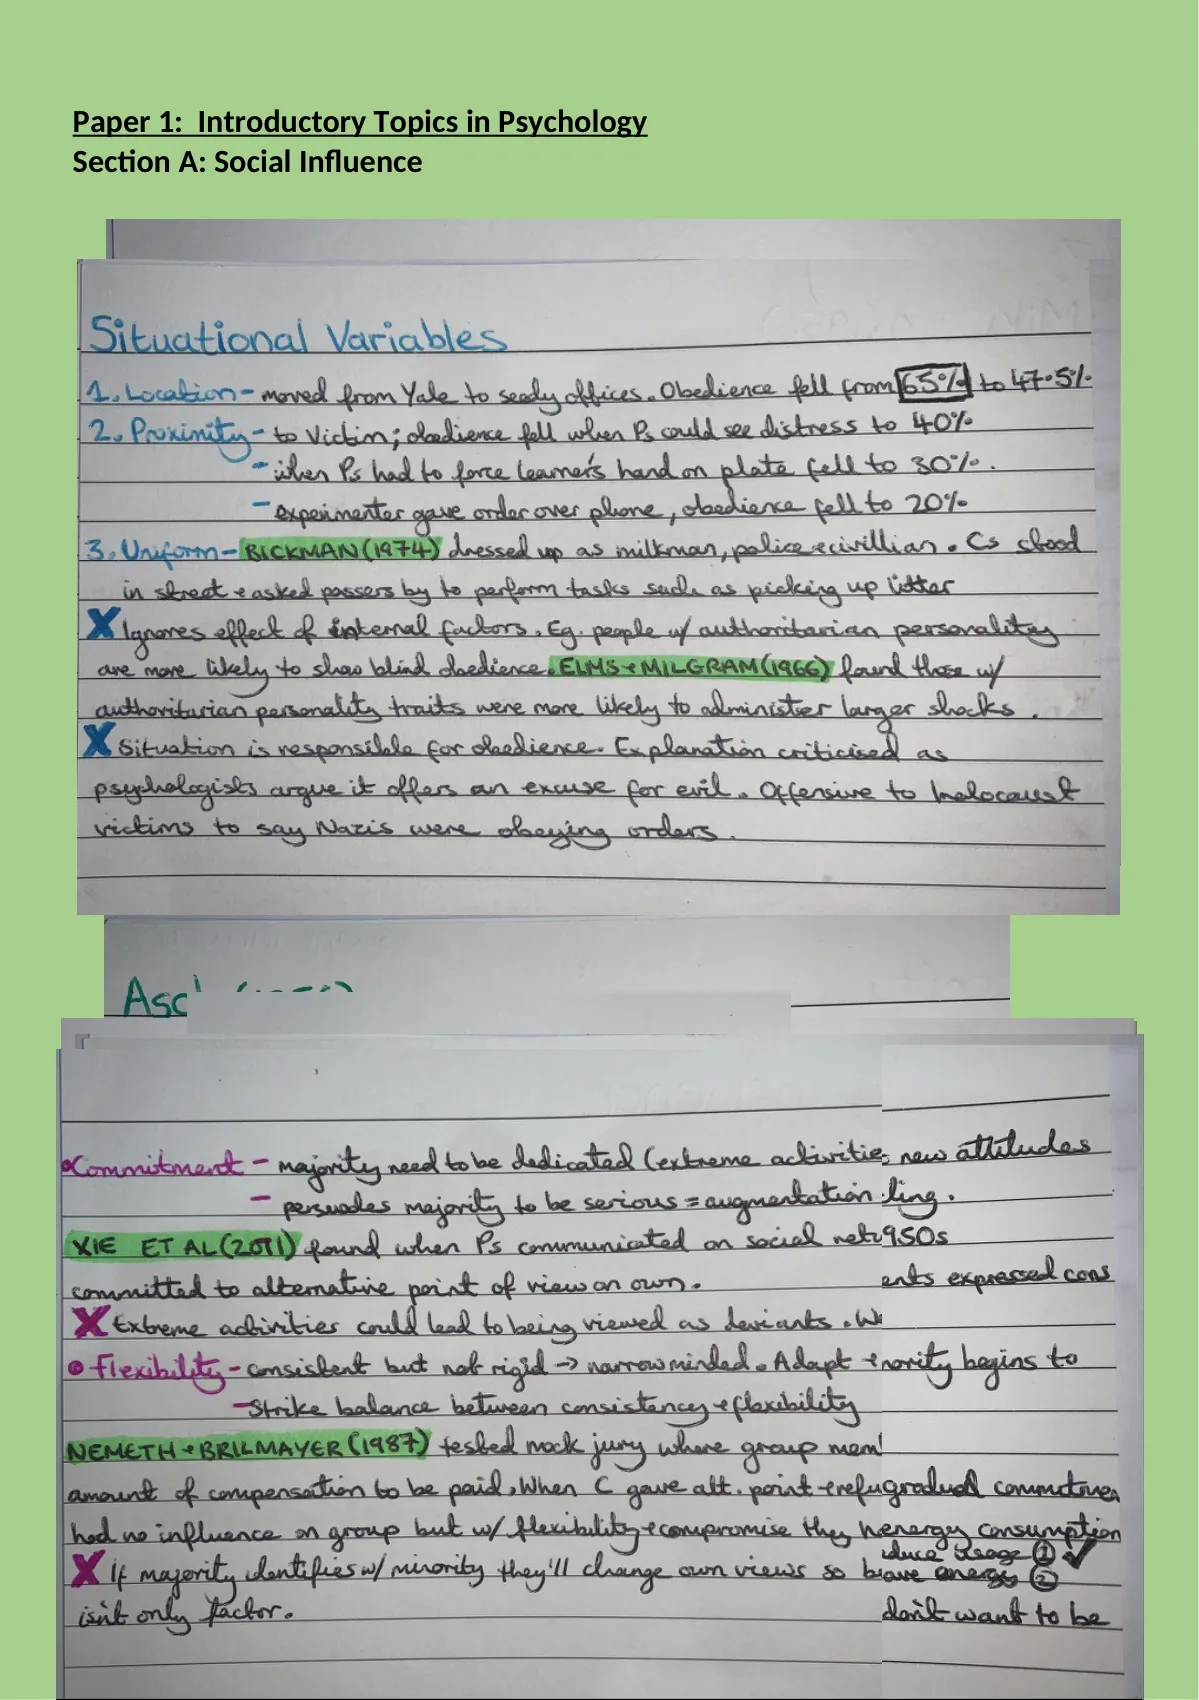 Paper 1: Introductory Topics in Psychology
Section A: Social Influence
Situational Variables
1. Location - moved from Yale to seedy offices. Obedience fell from 65% to 47.5%
2. Proximity - to Victim; obedience fell when Ps could see distress to 40%
- when Ps had to force learner's hand on plate fell to 30%.
- experimenter gave order over phone, obedience fell to 20%
3. Uniform - BICKMAN (1974) dressed up as milkman, police + civillian. Cs stood
in street + asked passers by to perform tasks such as picking up litter
X Ignores effect of internal factors. Eg. people w/ authoritarian personality
are more likely to show blind obedience. ELMS + MILGRAM (1966) found those w/
authoritarian personality traits were more likely to administer larger shocks.
X Situation is responsible for obedience. Explanation criticised as
psychologists argue it offers an excuse for evil. Offensive to holocaust
victims to say Nazis were obeying orders.
Asc
Commitment - majority need to be dedicated (extreme activitie new attitudes
- persuades majority to be serious = augmentation ling.
XIE ET AL (2011) found when Ps communicated on social net 950s
committed to alternative point of view on own. ents expressed cons
X Extreme activities could lead to being viewed as deviants. W
Flexibility - consistent but not rigid → narrowminded. Adapt + nority begins to
- Strike balance between consistency + flexibility
NEMETH + BRILMAYER (1987) tested mock jury where group mem
amount of compensation to be paid. When C gave alt. point + refu gradual commitmen
had no influence on group but w/ flexibility + compromise they h energy consumption
duce usage ① ✓
X If majority identifies w/ minority they'll change own views so b ave energy ②
isn't only factor. don't want to be